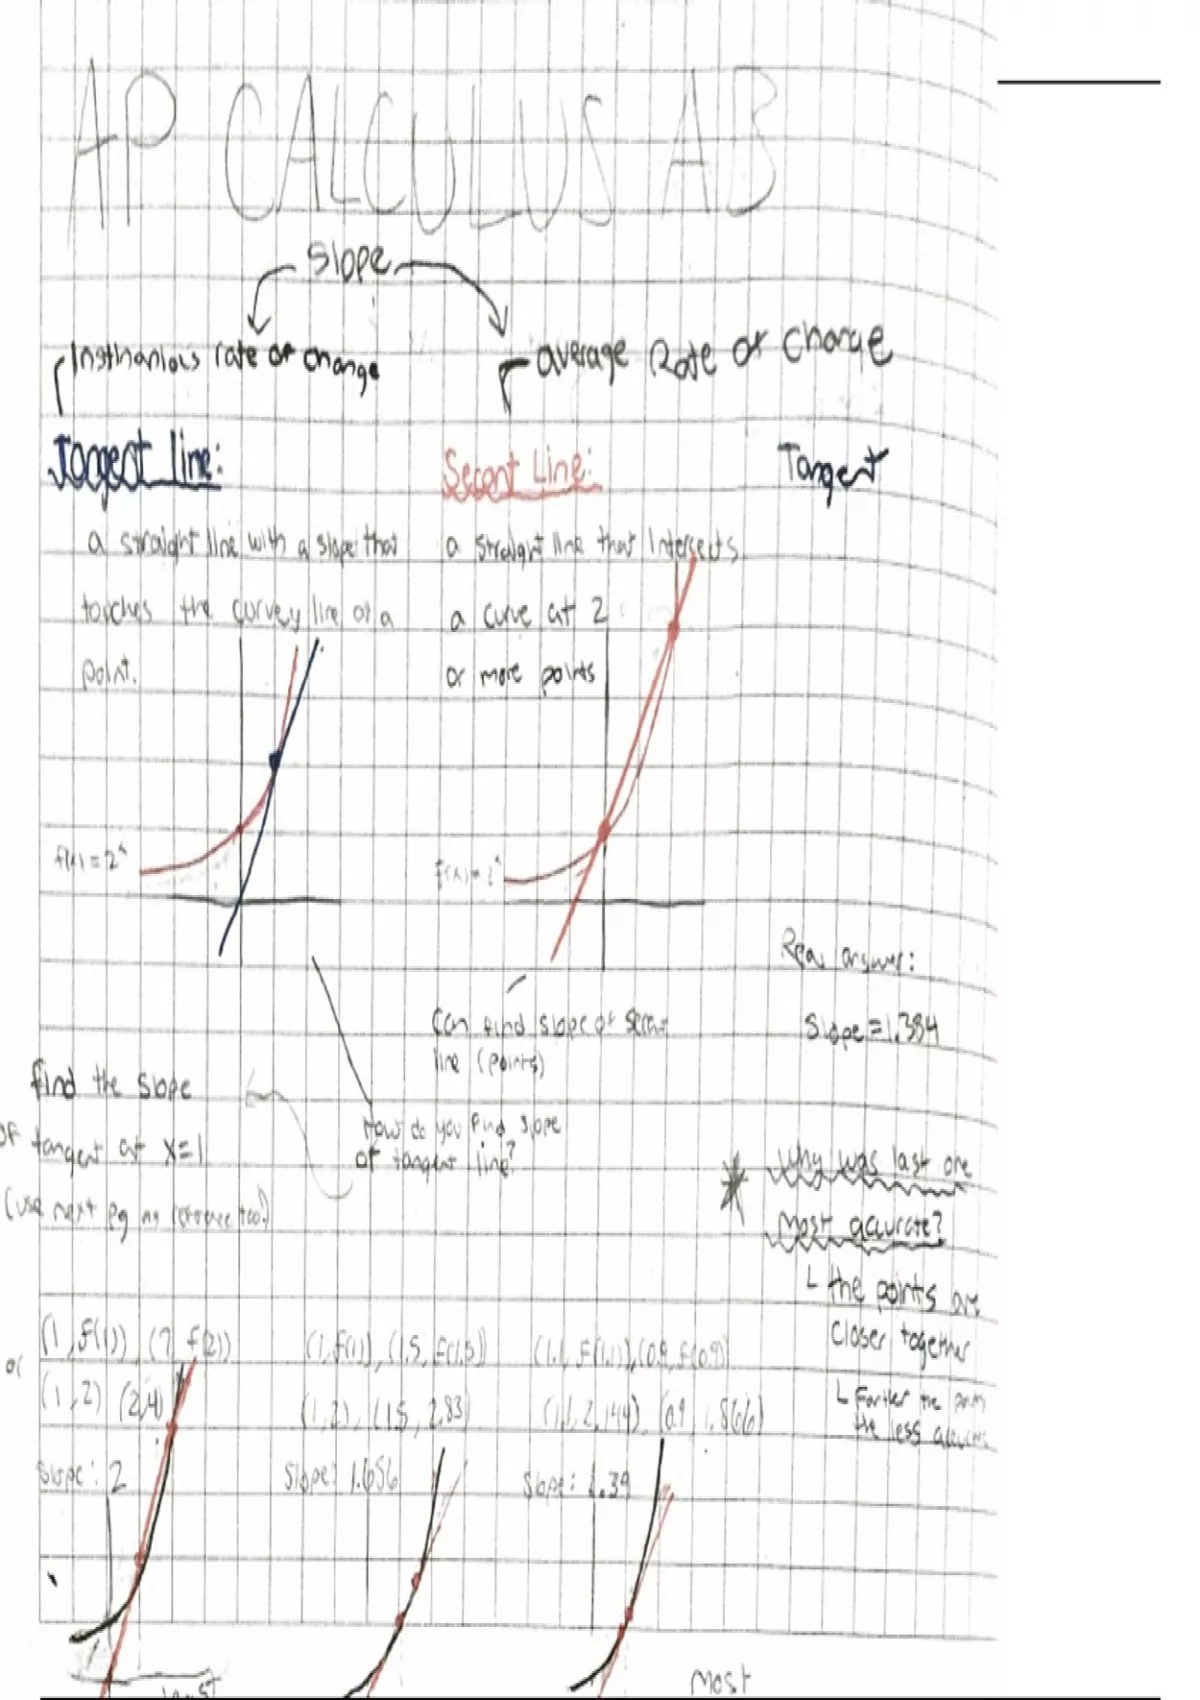 AP CALCULUS AB
Slope
Insthanios rate of change
average Rate of change
Tangent line:
Secant Line:
Tangent
a straight line with a slope that
touches the curvey line at a
point.
a straight line that intersects
a curve at 2
or more points
f(x) = 2ˣ
f(x) = 2ˣ
Real answer:
Slope = 1.384
Can find slope of secant
line (points)
How do you find slope
of tangent line?
find the slope
of tangent at x=1
(use next pg as reference too!)
* Why was last one
most accurate?
└ the points are
closer together
└ Farther the points
the less accurate
(1, f(1)), (2, f(2))
or (1,2) (2,4)
Slope: 2
(1, f(1)), (1.5, f(1.5))
(1,2), (1.5, 2.83)
Slope: 1.656
(1.1, f(1.1)), (0.9, f(0.9))
(1.1, 2.144), (0.9, 1.866)
Slope: 1.39
least
Most